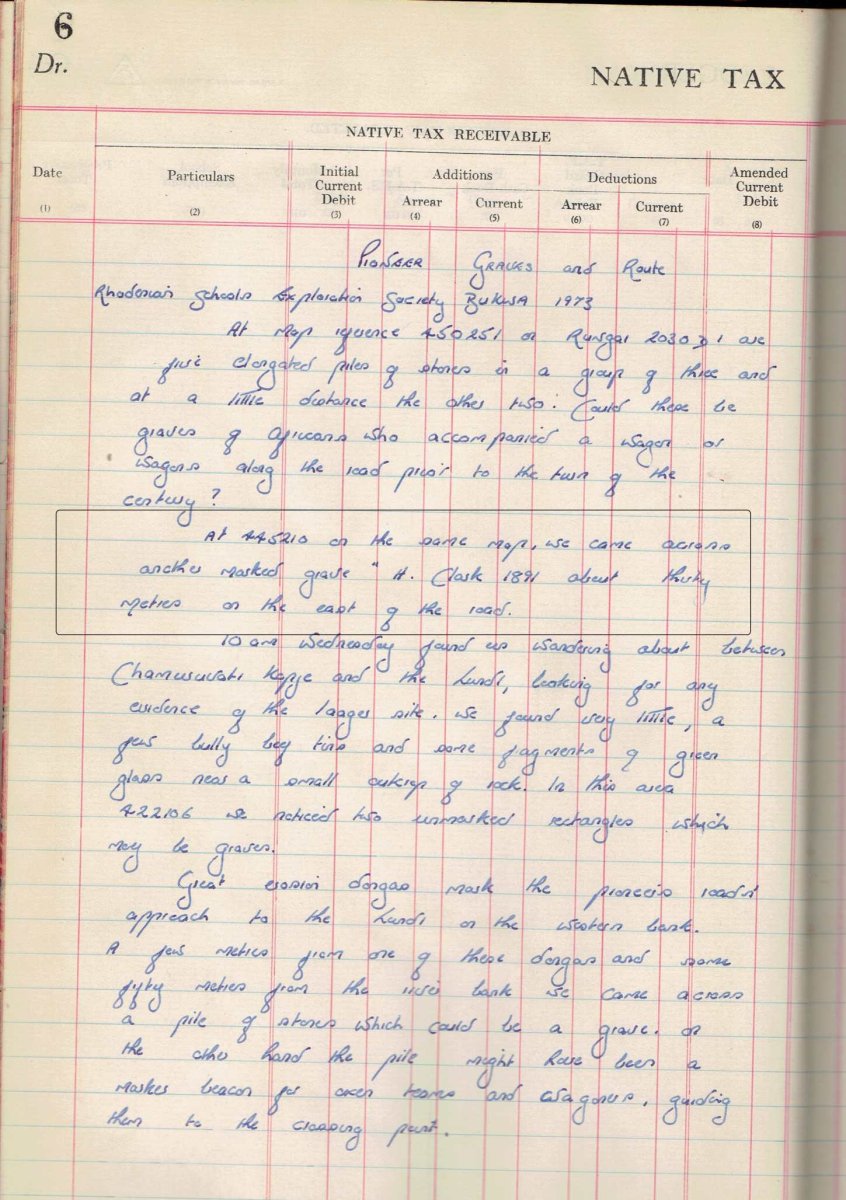 6
Dr.
NATIVE TAX
NATIVE TAX RECEIVABLE
Date Particulars Initial Current Debit Additions Deductions Amended Current Debit
Arrear Current Arrear Current
(1) (2) (3) (4) (5) (6) (7) (8)
PIONEER GRAVES and Route
Rhodesian Schools Exploration Society BUKWA 1973
At map reference 450251 on Rungai 2030 D1 are
five elongated piles of stones in a group of three and
at a little distance the other two. Could these be
graves of Africans who accompanied a wagon or
wagons along the road prior to the turn of the
century?
At 445210 on the same map, we came across
another marked grave " H. Clark 1891 about thirty
metres on the east of the road.
10 am Wednesday found us wandering about between
Chamusuvati Kopje and the Lundi, looking for any
evidence of the laager site. We found very little, a
few bully beef tins and some fragments of green
glass near a small outcrop of rock. In this area
422106 we noticed two unmarked rectangles which
may be graves.
Great erosion dongas mark the pioneers road's
approach to the Lundi on the western bank.
A few metres from one of these dongas and some
fifty metres from the river bank we came across
a pile of stones which could be a grave. On
the other hand the pile might have been a
marker beacon for oxen teams and wagoners, guiding
them to the crossing point.